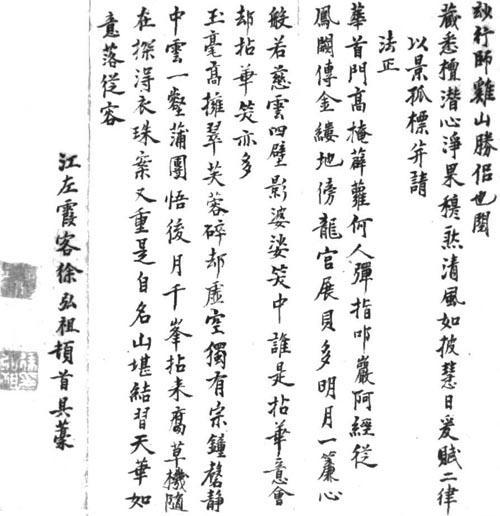 妙行師雞山勝侣也閱
藏悉檀潛心淨果穆然清風如披慧日爰賦二律
以景孤標并請
法正
華首門高掩薜蘿何人彈指叩巖阿經從
鳳闕傳金縷地傍龍宫展貝多明月一簾心
般若慈雲四壁影婆娑笑中誰是拈華意會
却拈華笑亦多
玉毫高擁翠芙蓉碎却虚空獨有宗鐘磬静
中雲一壑蒲團悟後月千峯拈来腐草機随
在探得衣珠案又重是自名山堪結習天華如
意落從容
江左霞客徐弘祖頓首具藁